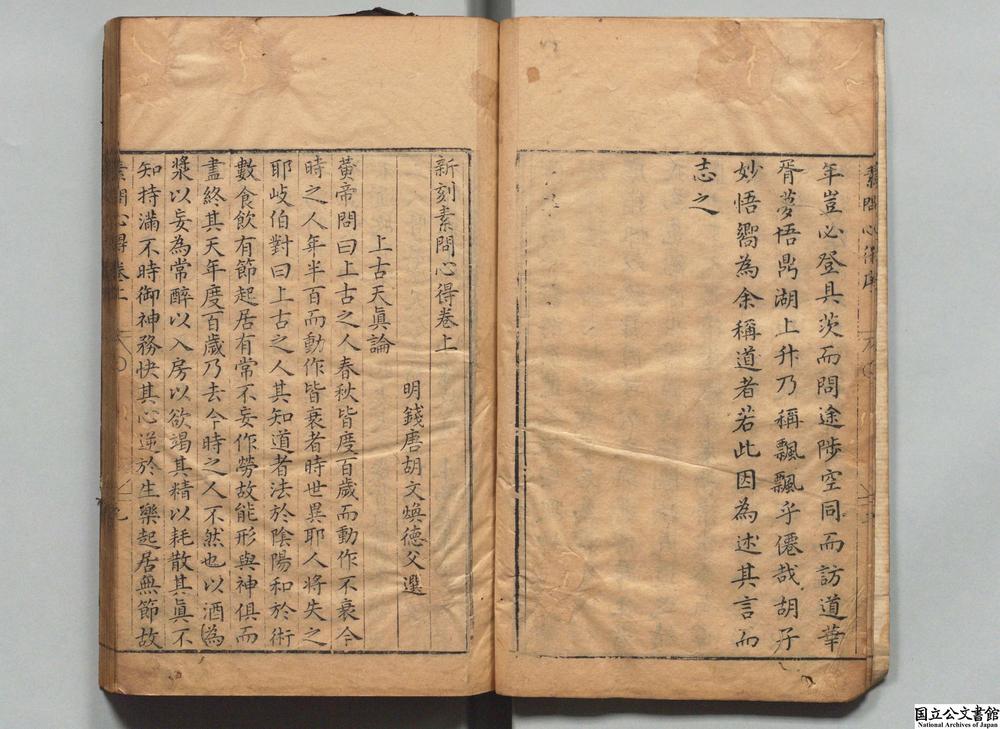 素問心得序
年豈必登具茨而問途陟空同而訪道華
胥夢悟鼎湖上升乃稱飄飄乎僊哉胡子
妙悟嚮為余稱道者若此因為述其言而
志之
新刻素問心得卷上
明錢唐胡文煥德父選
上古天眞論
黄帝問曰上古之人春秋皆度百歲而動作不衰今
時之人年半百而動作皆衰者時世異耶人將失之
耶岐伯對曰上古之人其知道者法於陰陽和於術
數食飲有節起居有常不妄作勞故能形與神俱而
盡終其天年度百歲乃去今時之人不然也以酒為
漿以妄為常醉以入房以欲竭其精以耗散其眞不
知持滿不時御神務快其心逆於生樂起居無節故
素問心得卷上
国立公文書館
National Archives of Japan